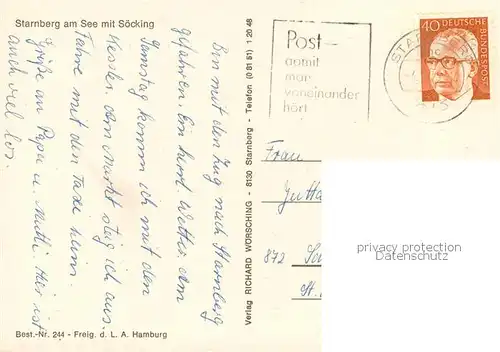 Starnberg am See mit Söcking
Bin mit den Zug nach Starnberg
gefahren. Ein herrl. Wetter. Am
Samstag komm ich mit den
Wester. Am Markt stug ich aus.
Fahre mit den Taxe heim.
Grüße an Papa u. Mutti. Hier ist
auch viel los.
Best.-Nr. 244 - Freig. d. L. A. Hamburg
Verlag RICHARD WÖRSCHING - 8130 Starnberg - Telefon (0 81 51) 1 20 48
Post–
damit
man
voneinander
hört
40 DEUTSCHE
BUNDESPOST
Frau
Jutta
872
St.
privacy protection
Datenschutz